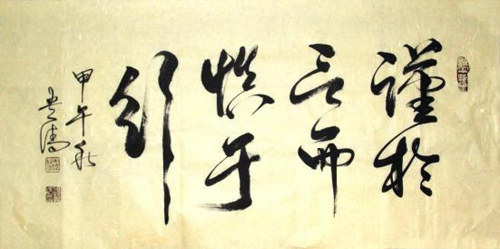 谨於
言而
慎于
行
甲午秋